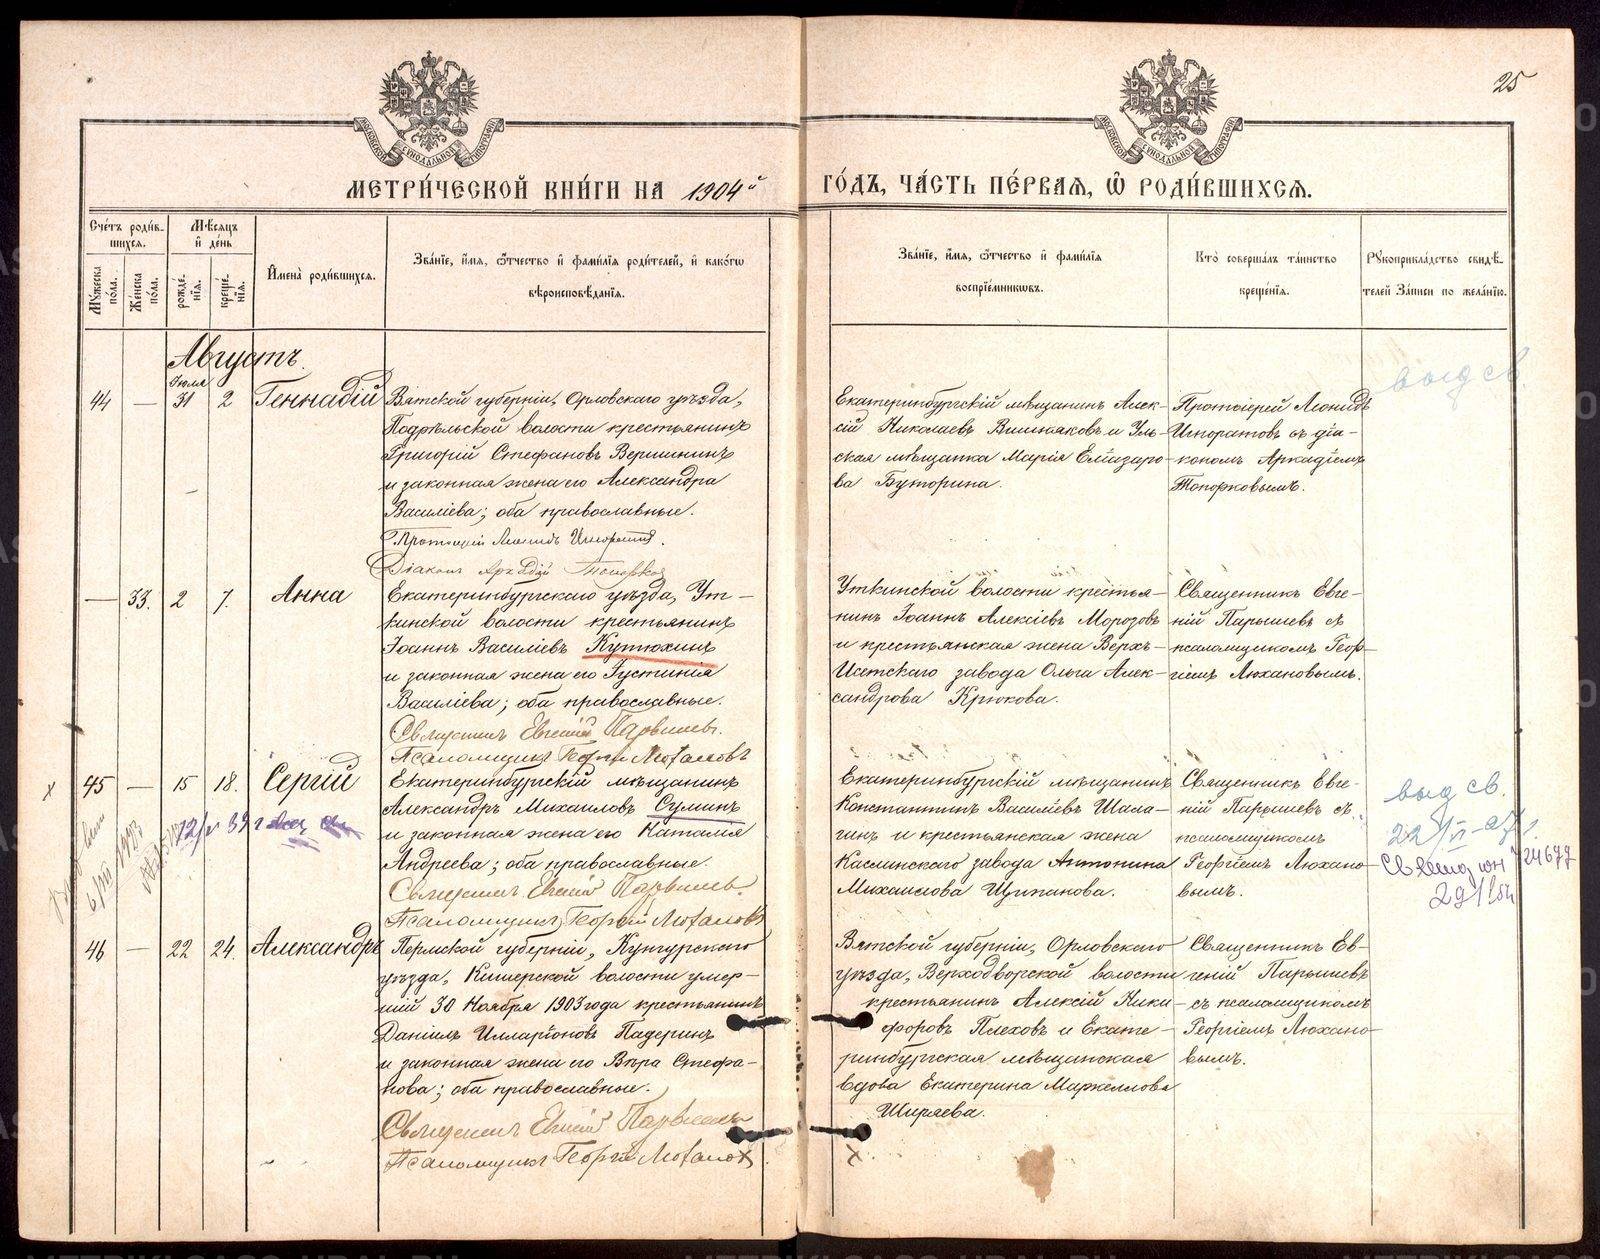 25
МОСКОВСКОЙ СѴНОДАЛЬНОЙ ТИПОГРАФІИ
МОСКОВСКОЙ СѴНОДАЛЬНОЙ ТИПОГРАФІИ
МЕТРИ́ЧЕСКОЙ КНИ́ГИ НА 1904й ГО́ДЪ, ЧА́СТЬ ПЕ́РВАЯ, Ѡ҆ РОДИ́ВШИХСЯ.
Сче́тъ роди́в-
шихся.
Мѹ́жеска по́ла.
Же́нска по́ла.
Мѣ́сяцъ и҆ де́нь
рожде́-нїя.
креще́-нїя.
И҆мена̀ роди́вшихся.
Зва́нїе, и҆́мя, ѻ҆́тчество и҆ фами́лїя роди́телей, и҆ како́гѡ
вѣроисповѣ́данїя.
Зва́нїе, и҆́мя, ѻ҆́тчество и҆ фами́лїя
воспрїе́мникѡвъ.
Кто̀ соверша́лъ та́инство
креще́нїя.
Рѹкоприкла́дство свидѣ́-
телей за́писи по жела́нїю.
Августъ.
44 — Іюля 31 2 Геннадій
Вятской губерніи, Орловскаго уѣзда,
Подрѣльской волости крестьянинъ
Григорій Стефановъ Вершининъ
и законная жена его Александра
Василіева; оба православные.
Протоіерей Леонидъ Игноратовъ.
Діаконъ Аркадій Топорков
Екатеринбургскій мѣщанинъ Алек-
сій Николаевъ Вишняковъ и Уль-
ская мѣщанка Марія Еліазаро-
ва Буторина.
Протоіерей Леонидъ
Игноратовъ съ діа-
кономъ Аркадіемъ
Топорковымъ.
выд св.
— 33. 2 7. Анна
Екатеринбургскаго уѣзда, Ут-
кинской волости крестьянинъ
Іоаннъ Василіевъ Кутюхинъ
и законная жена его Іустинія
Василіева; оба православные.
Священникъ Евгеній Парышевъ.
Псаломщикъ Георгій Люхановъ
Уткинской волости крестья-
нинъ Іоаннъ Алексіевъ Морозовъ
и крестьянская жена Верхъ-
Исетскаго завода Ольга Алек-
сандрова Крюкова.
Священникъ Евге-
ній Парышевъ съ
псаломщикомъ Геор-
гіемъ Люхановымъ.
х 45 — 15 18. Сергій
Екатеринбургскій мѣщанинъ
Александръ Михаиловъ Суминъ
и законная жена его Наталія
Андреева; оба православные.
Священникъ Евгеній Парышевъ.
Псаломщикъ Георгій Люхановъ
Екатеринбургскій мѣщанинъ
Константинъ Василіевъ Шала-
гинъ и крестьянская жена
Каслинскаго завода Антонина
Михаилова Щипанова.
Священникъ Евге-
ній Парышевъ съ
псаломщикомъ
Георгіемъ Люхано-
вымъ.
выд св.
24677
46 — 22 24. Александръ
Пермской губерніи, Кунгурскаго
уѣзда, Кишерской волости умер-
шій 30 Ноября 1903 года крестьянинъ
Даніилъ Илларіоновъ Падеринъ
и законная жена его Вѣра Стефа-
нова; оба православные.
Священникъ Евгеній Парышевъ
Псаломщикъ Георгій Люхановъ
Вятской губерніи, Орловскаго
уѣзда, Верходворской волости
крестьянинъ Алексій Ники-
форовъ Плеховъ и Екате-
ринбургская мѣщанская
вдова Екатерина Маркеллова
Ширяева.
Священникъ Ев-
геній Парышевъ
съ псаломщикомъ
Георгіемъ Люхано-
вымъ.